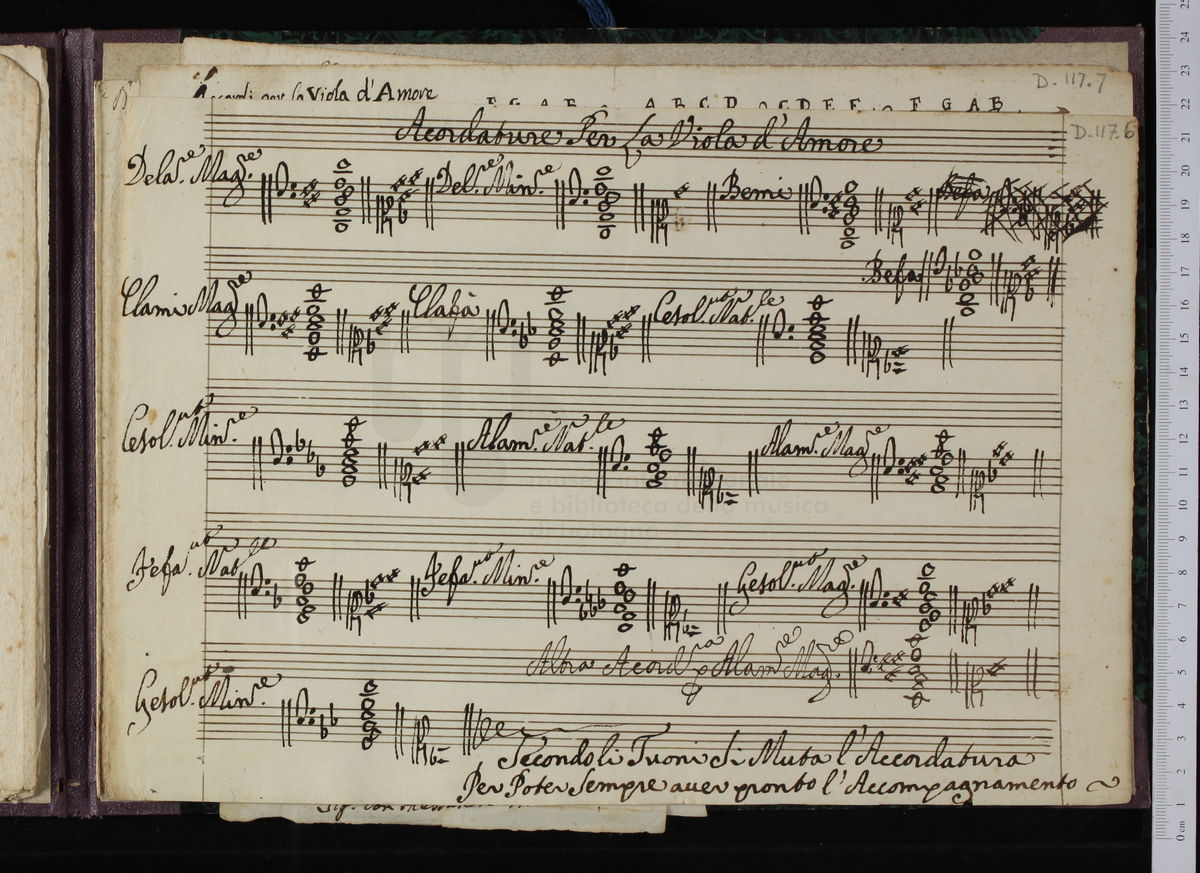 D. 117.7
Accordi per la Viola d'Amore
F G A B A B C D C D E F F G A B
D. 117.6
Acordature Per La Viola d'Amore
Dela.re Mag.re Del.re Min.re Bemi Befa
Befa
Elami Mag.re Elafà Cesol.ut Nat.le
Cesol.ut Min.re Alam.re Nat.le Alam.re Mag.re
Fefa.ut Nat.le Fefa.ut Min.re Gesol.ut Mag.re
Altra Acord.ra p Alam.re Mag.re
Gesol.ut Min.re
Secondo li Tuoni Si Muta l'Accordatura
Per Poter Sempre aver pronto l'Accompagnamento
museo internazionale
e biblioteca della musica
di bologna